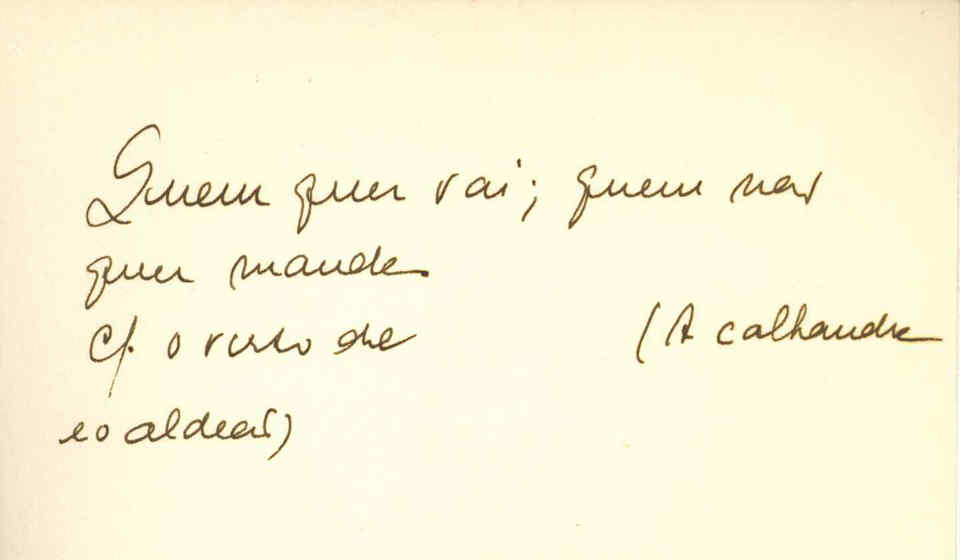 Quem quer vai; quem não
quer manda.
Cf. o verso de (A calhandra
e o aldeão)